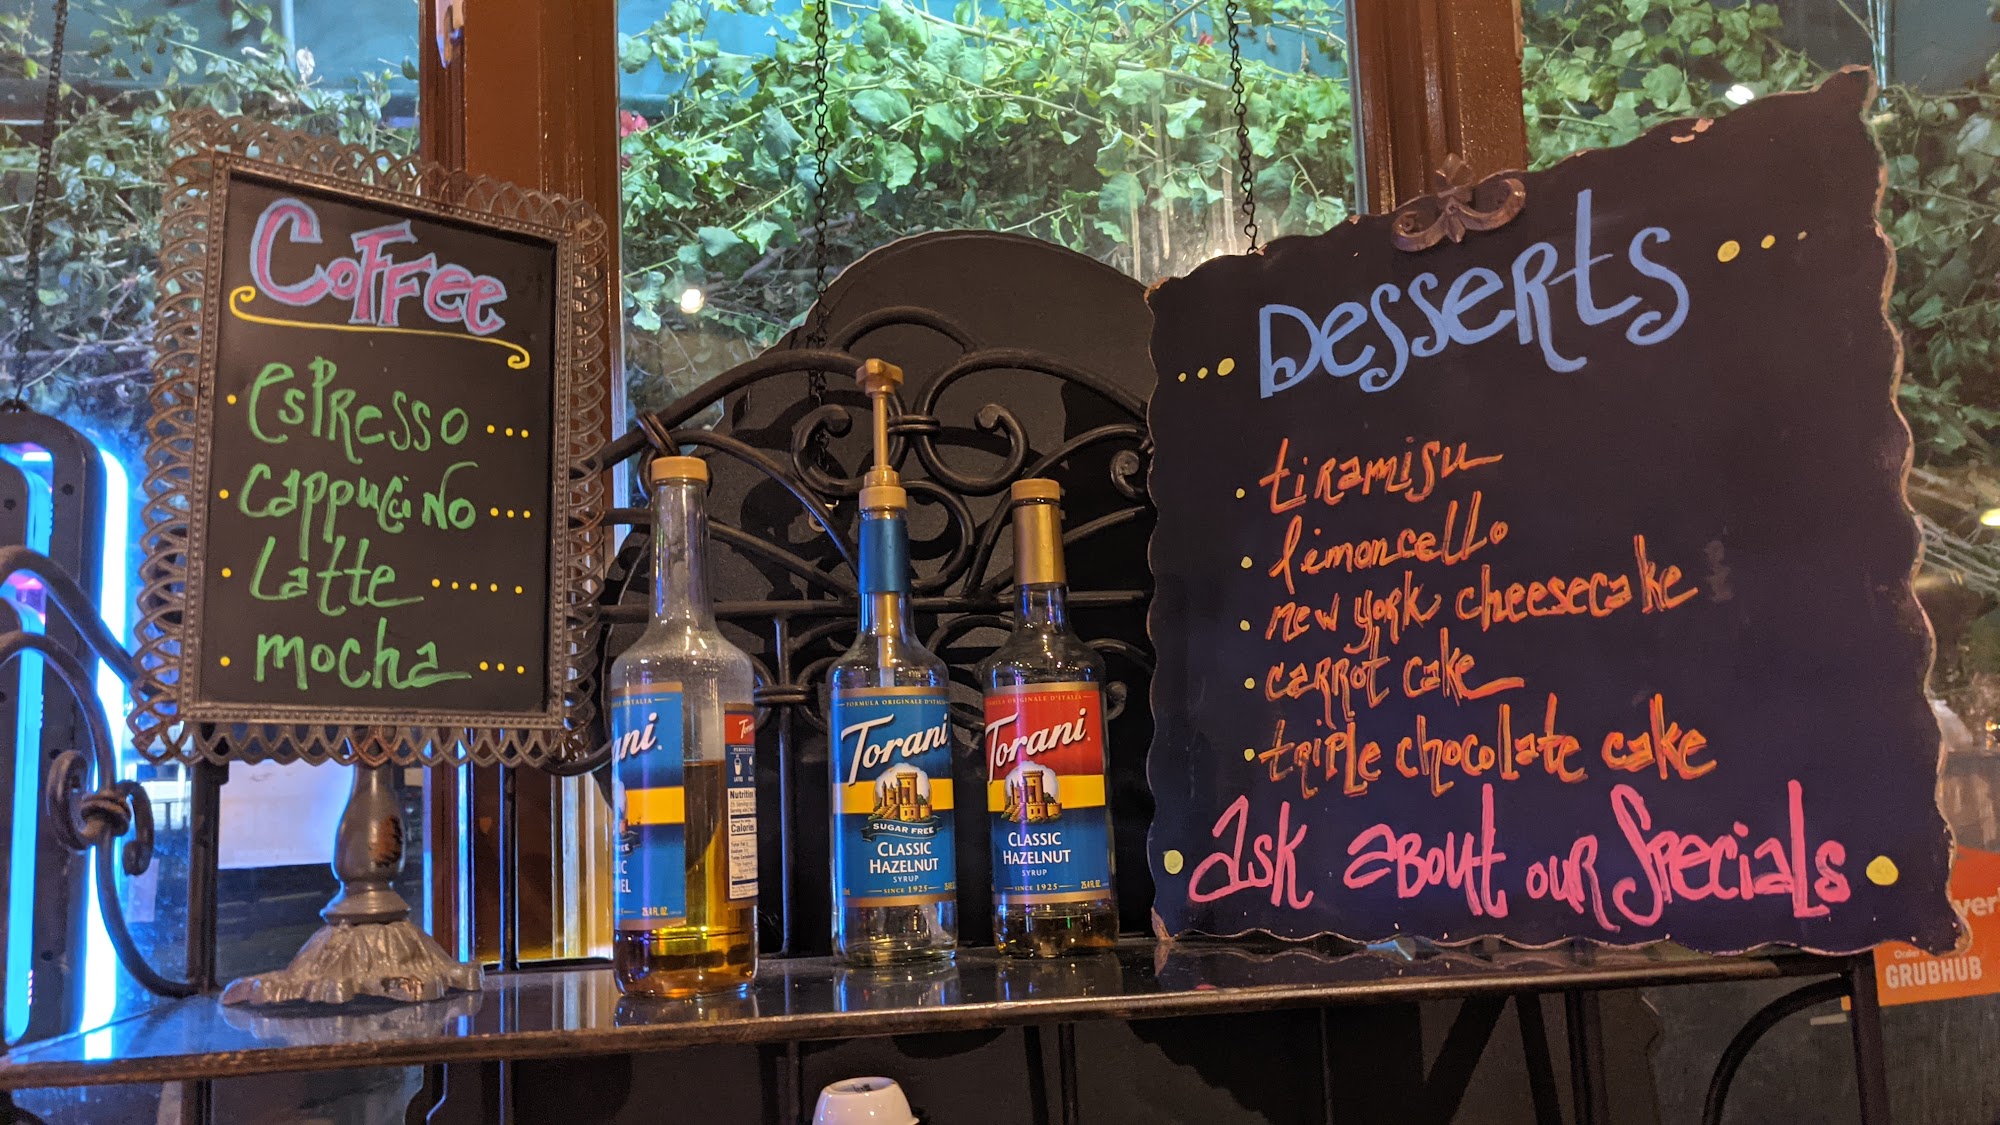 Coffee
• espresso ...
• cappuccino ...
• Latte .....
• mocha ...
... Desserts ...
• tiramisu
• limoncello
• new york cheesecake
• carrot cake
• triple chocolate cake
• Ask about our specials •
Torani
SUGAR FREE
CLASSIC
HAZELNUT
SYRUP
SINCE 1925
FORMULA ORIGINALE D'ITALIA
Torani
CLASSIC
HAZELNUT
SYRUP
SINCE 1925
25.4 FL OZ.
25.4 FL OZ.
Nutrition
Calories
GRUBHUB